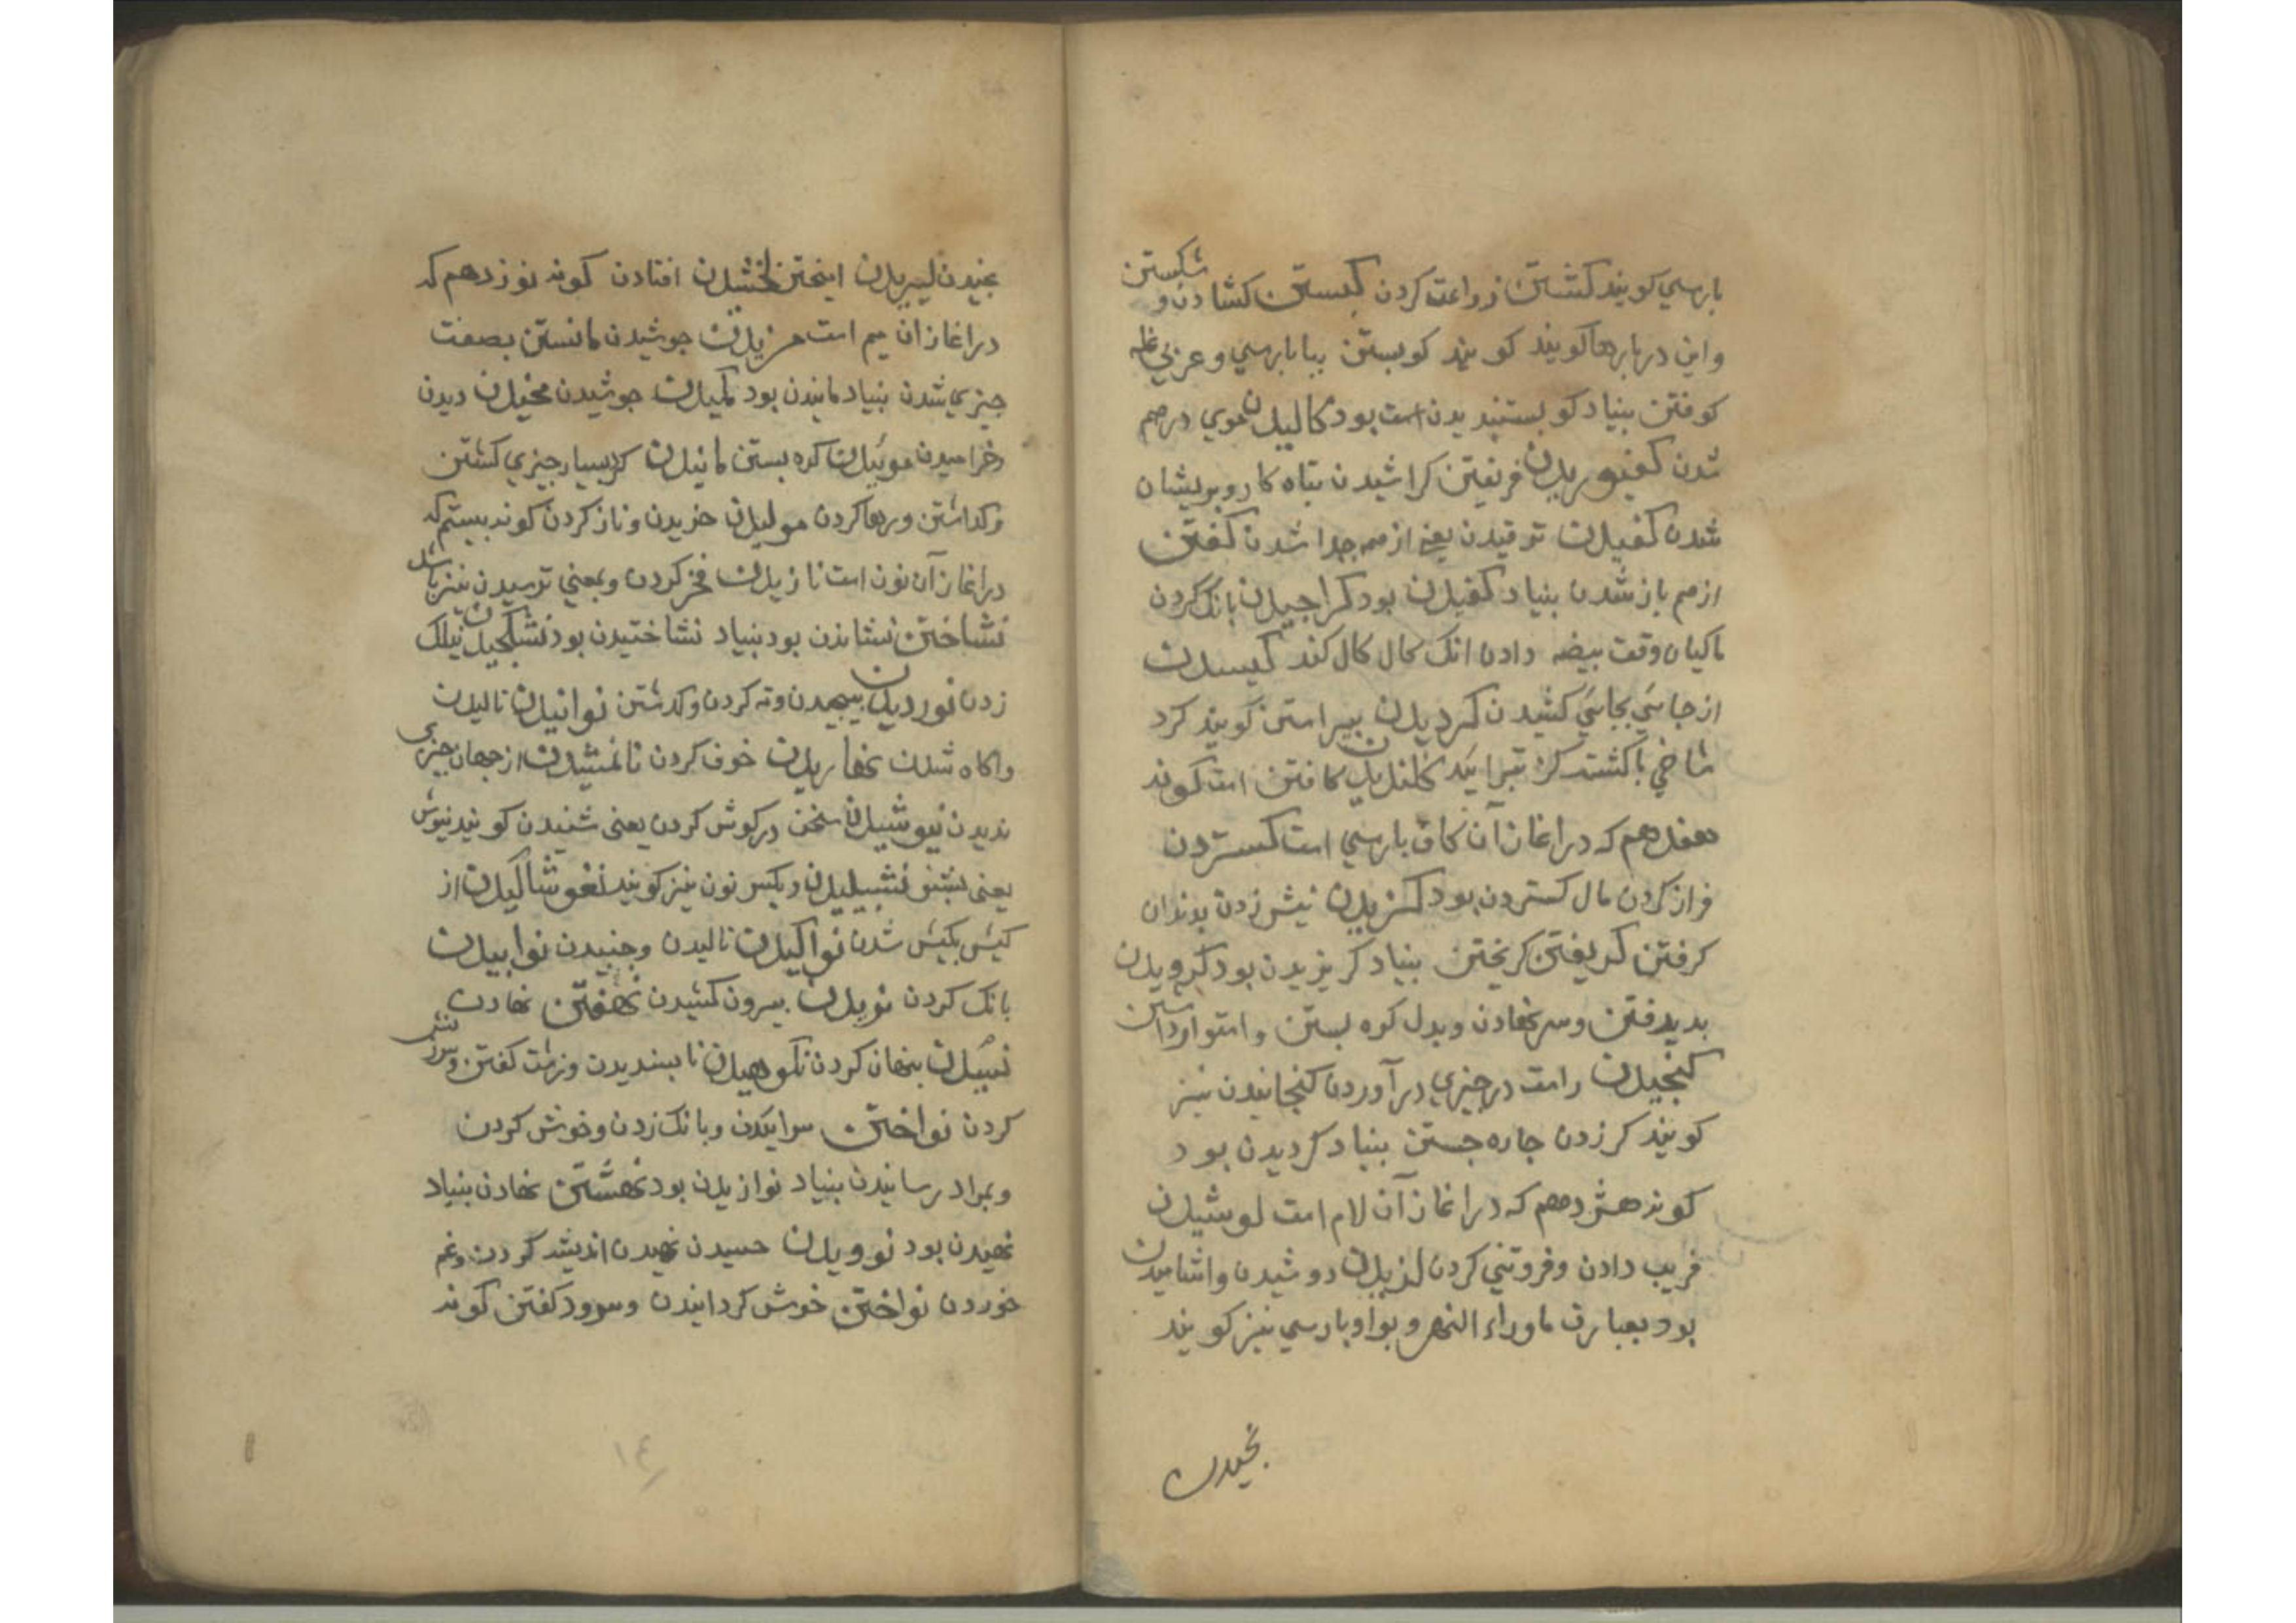 بارسي کویند کشتن زراعت کردن کسستن کشادن و شکستن
واین در بارها کویند کویند کوبستن ببا بارسي و عربي غله
کوفتن بنیاد کوبستنیدیدن است بود کالیدن موي درهم
شدن کفنویریدن فریفتن کراشیدن تباه کار و بریشان
شدن کفیدن ترقیدن یعنی از هم جدا شدن کفتن
ازهم باز شدن بنیاد کفیدن بود کراجیدن بانک کردن
ماکیان وقت بیضه دادن انک کال کال کند کیسدن
از جائي بجائي کشیدن کردیدن بیراستن کویند کرد
شاخي باکشت کز تبرا ید کلندیدن کافتن است کوند
هفدهم که دراغاز آن کاف بارسي است کستردن
فراز کردن مال کستردن بود کزیدن نیش زدن بدندان
کرفتن کریفتن کریختن بنیاد کریزیدن بود کرویدن
بدیرفتن وسر نهادن و بدل کوه بستن و استوار داشتن
کنجیدن راست در جیزي درآوردن کنجانیدن نیز
کویند کرزدن جاره جستن بنیاد کردیدن بود
کونه هشدهم که دراغاز آن لام است لوشیدن
فریب دادن وفروتني کردن لزیدن دوشیدن واشامیدن
بود بعبارت ماوراء النهر و بواو بارسي نیز کویند
بخیدن
بخیدن لیبریدن اینختن لخشیدن افتادن کونه نوزدهم که
دراغاز ان میم است مزیدن جوشیدن مانستن بصفت
جیزي شدن بنیاد مانیدن بود مکیدن جوشیدن مخیدن دیدن
وخرامیدن مویبدن کره بستن مانیدن کربسیار جیزي کشتن
وکداشتن ورها کردن مولیدن خزیدن وناز کردن کونه بیستم که
دراغاز آن نون است نازیدن فخر کردن وبمعني ترسیدن نیز باشد
نشاختن نشاندن بود بنیاد نشاختیدن بود نشکنجیدن نیلک
زدن نوردیدن بیجیدن وته کردن وکذشتن نوانیدن نالیدن
واکاه شدن نهاریدن خوف کردن نانمشیدن از جهان جیزي
ندیدن نیوشیدن سخن درکوش کردن یعنی شنیدن کویند نیوش
یعنی بشنو نشبیلیدن وبکسر نون نیز کویند نغوشاکیدن از
کیش بکیش شدن نواکیدن نالیدن وجنبیدن نوابیدن
بانک کردن نویدن بیرون کشیدن نهفتن نهادن
نبیدن بنهان کردن نکوهیدن نابسندیدن وزشت کفتن وسرزنش
کردن نواختن سراییدن وبانک زدن وخوش کردن
وبمراد رسانیدن بنیاد نوازیدن بود نهشتن نهادن بنیاد
نهیدن بود نوویدن حسیدن نهیدن اندیشه کردن وغم
خوردن نواختن خوش کردانیدن وسرود کفتن کونه
۱۴